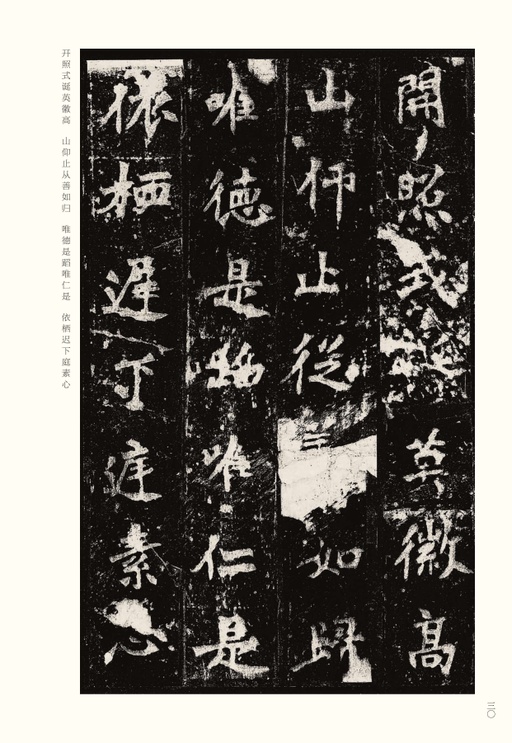 開照式誕英徽高
山仰止從善如歸
唯德是蹈唯仁是
依栖遲下庭素心
开照式诞英徽高 山仰止从善如归 唯德是蹈唯仁是 依栖迟下庭素心
三〇